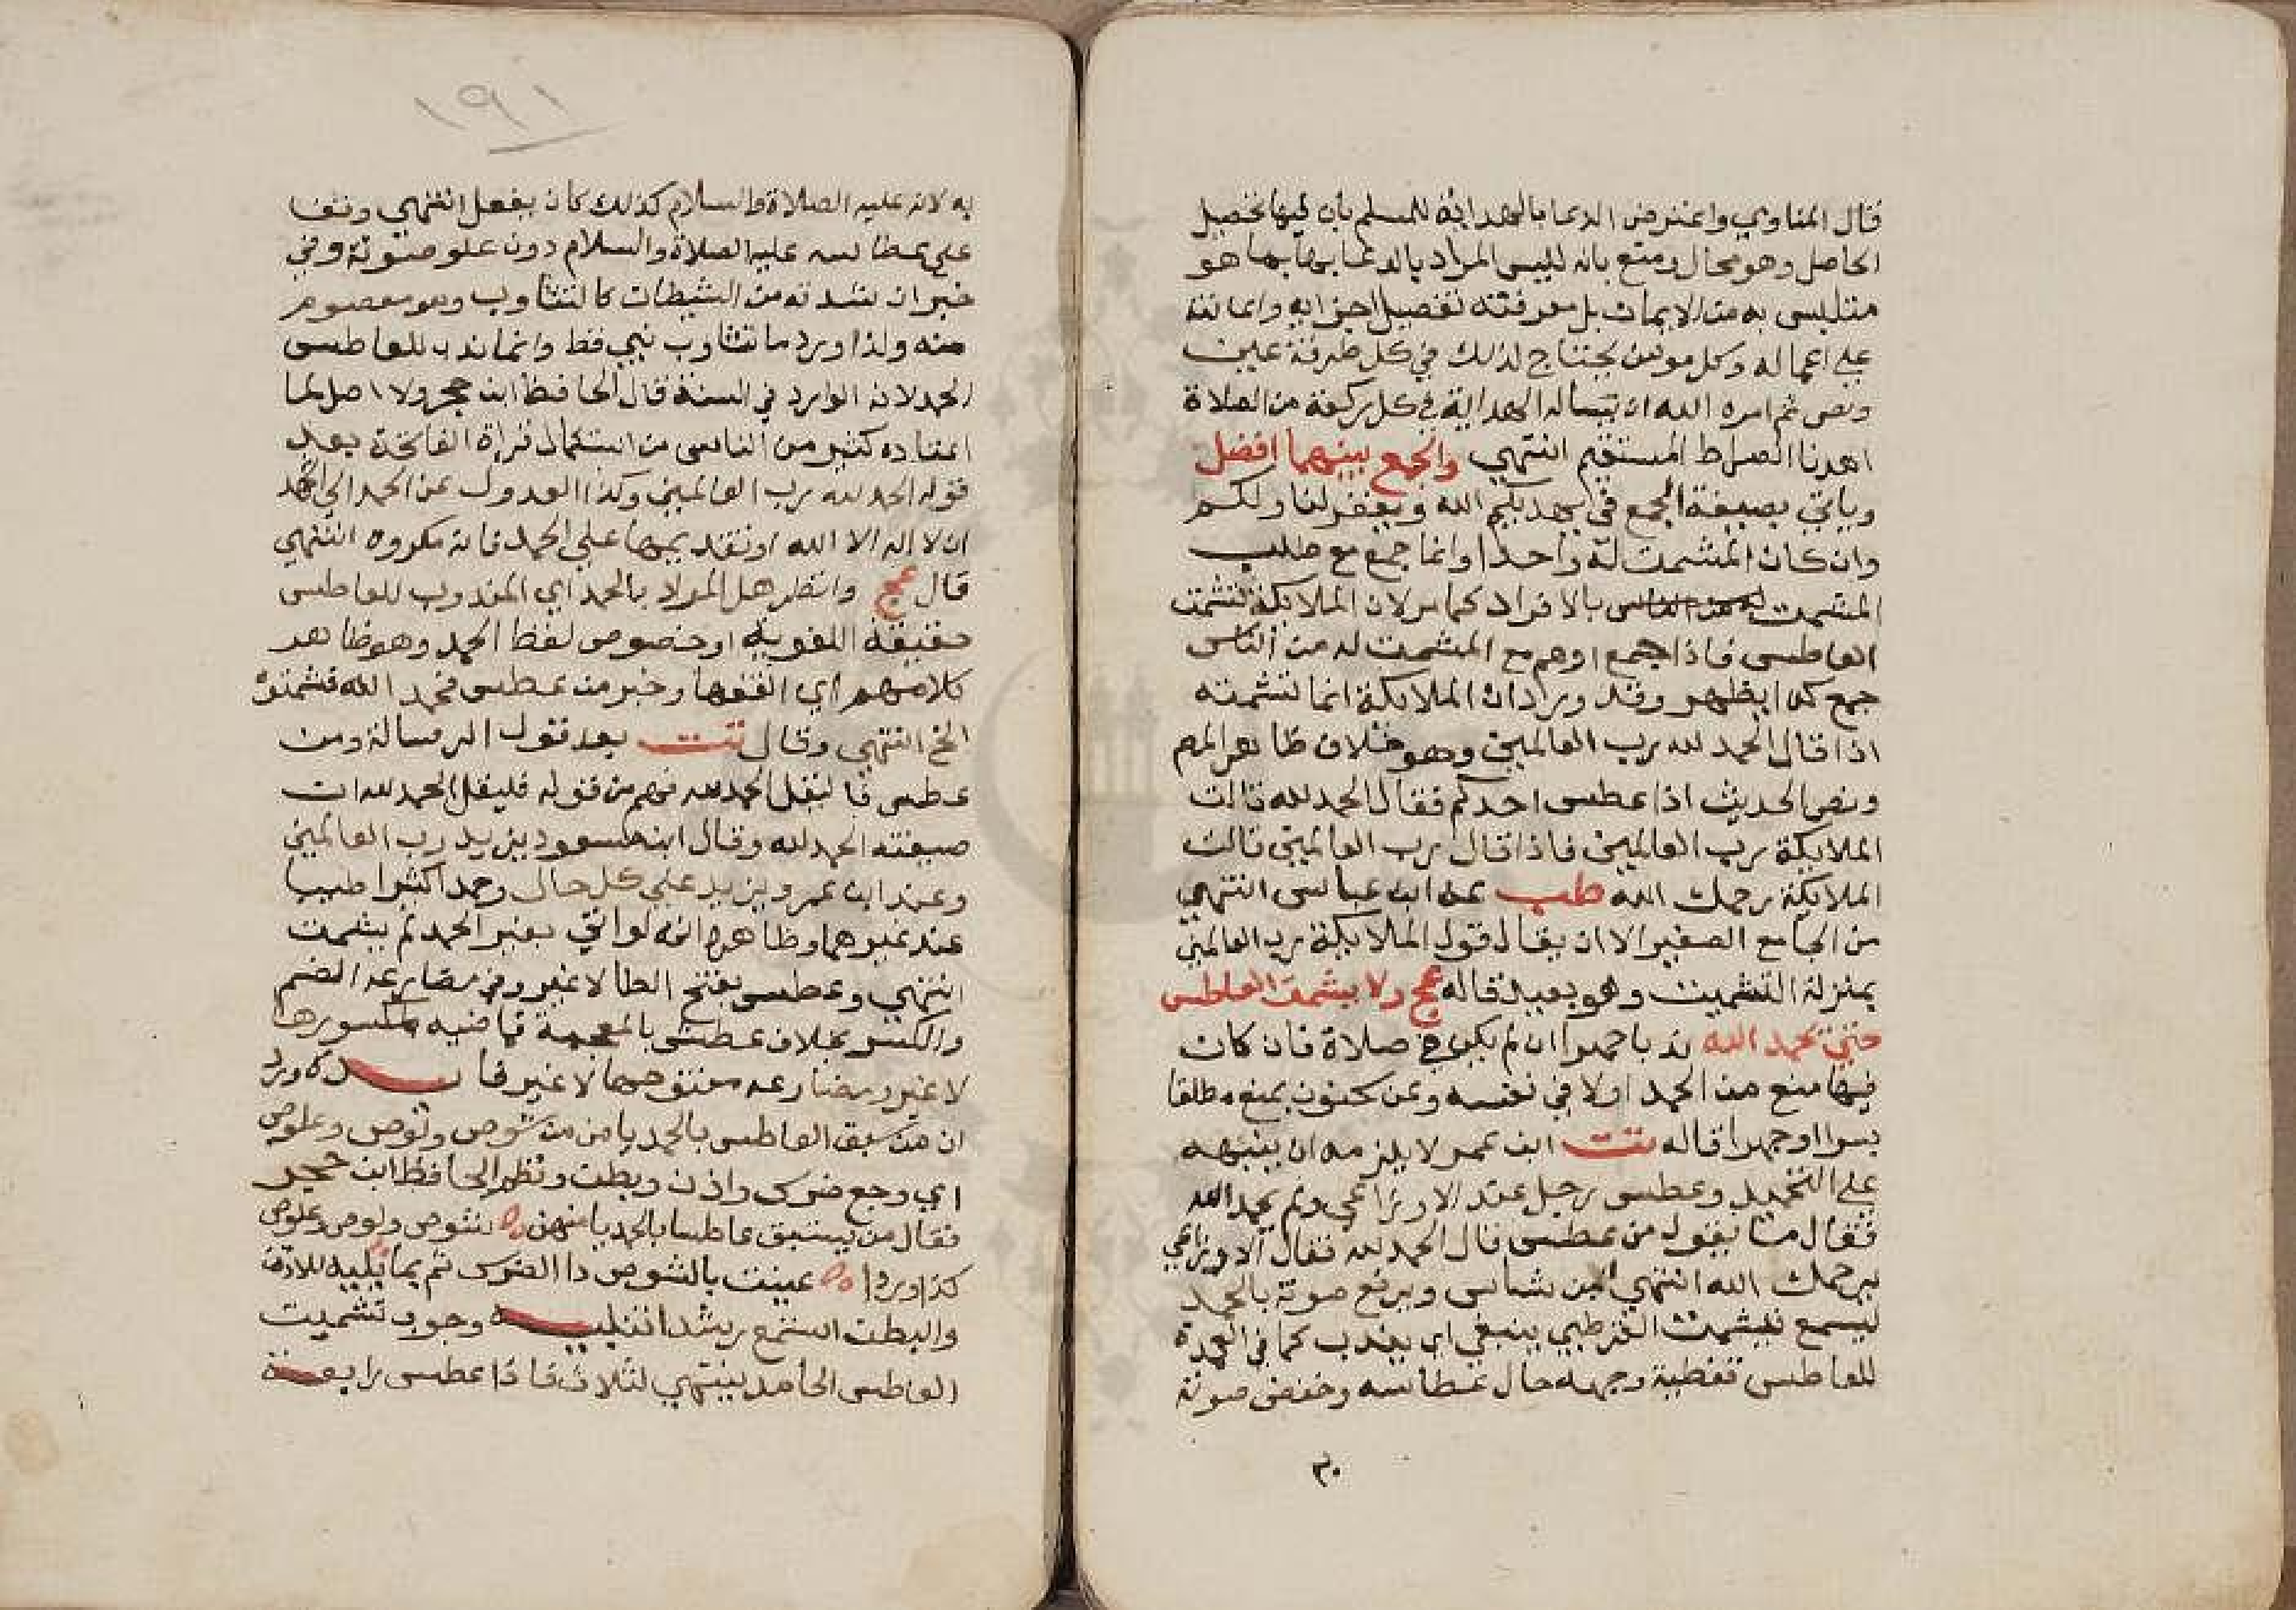 قال المناوي واعترض الدعا بالهداية للمسلم بان فيها تحصيل
الحاصل وهو محال ومنع بانه ليس المراد بالدعا بها بما هو
متلبس به من الايمان بل معرفته تفصيل اجزايه واعانته
على اعماله وكل مومن يحتاج لذلك في كل طرفة عين
ومن ثم امره الله ان يساله الهداية في كل ركعة من الصلاة
اهدنا الصراط المستقيم انتهي والجمع بينهما افضل
وياتي بصيغة الجمع في يهديكم الله ويغفر لنا ولكم
وان كان المشمت له واحدا وانما جمع مع طلب
المشمت بالافراد كما مر لان الملايكة تشمت
العاطس فاذا جمع اوهم مع المشمت له من الناس
جمع كذا يظهر وقد ورد ان الملايكة انما تشمته
اذا قال الحمد لله رب العالمين وهو خلاف ظاهر المص
ونص الحديث اذا عطس احدكم فقال الحمد لله قالت
الملايكة رب العالمين فاذا قال رب العالمين قالت
الملايكة رحمك الله طب عن ابن عباس انتهي
من الجامع الصغير الا ان يقال قول الملايكة رب العالمين
بمنزلة التشميت وهو بعيد قاله عج ولا يشمت العاطس
حتي يحمد الله ندبا جهرا ان لم يكن في صلاة فان كان
فيها منع من الحمد اولا في نفسه وعن سحنون يمنع مطلقا
سرا او جهرا قاله تت ابن عمر لا يلزمه ان ينبهه
على التحميد وعطس رجل عند الاوزاعي ولم يحمد الله
فقال ما يقول من عطس قال الحمد لله فقال الاوزاعي
يرحمك الله انتهي ابن شاس ويرفع صوته بالحمد
ليسمع فيشمت القرطبي ينبغي اي يندب كما في العمدة
للعاطس تغطية وجهه حال عطاسه وخفض صوته
٣٠
١٩١
به لانه عليه الصلاة والسلام كذلك كان يفعل انتهي وتفا
على عطاسه عليه الصلاة والسلام دون علو صوته وفي
خبر ان شدته من الشيطان كالتثاوب وهو معصوم
منه ولذا ورد ما تثاوب نبي قط وانما ندب للعاطس
الحمد لانه الوارد في السنة قال الحافظ ابن حجر ولا اصل لما
اعتاده كثير من الناس من استكمال قراة الفاتحة بعد
قوله الحمد لله رب العالمين وكذا العدول عن الحمد الى اشهد
ان لا اله الا الله او تقديمها على الحمد فانه مكروه انتهي
قال عج وانظر هل المراد بالحمد اي المندوب للعاطس
حقيقة اللغوية او خصوص لفظ الحمد وهو ظاهر
كلامهم اي الفقها وخبر من عطس فحمد الله فشمتوه
الخ انتهي وقال تت بعد قول الرسالة ومن
عطس فاليقل الحمد لله فهم من قوله فليقل الحمد لله ان
صيغته الحمد لله وقال ابن مسعود يزيد رب العالمين
وعند ابن عمر ويزيد على كل حال وحمدا كثيرا طيبا
عند غيرهما وظاهره انه لو اتي بغير الحمد لم يشمت
انتهي وعطس بفتح الطا لا غير وفي مضارعه الضم
والكسر بخلاف عطش بالمعجمة فماضيه مكسورها
لا غير ومضارعه مفتوحها لا غير فايـــدة ورد
ان من سبق العاطس بالحمد يامن من شوص ولوص وعلوص
اي وجع ضرس واذن وبطن ونظم الحافظ ابن حجر
فقال من يستبق عاطسا بالحمد يامن من شوص ولوص وعلوص
كذا وردا عنيت بالشوص دا الضرس ثم بما يليه للاذن
والبطن استمع رشدا تنبيـــه وجوب تشميت
العاطس الحامد ينتهي لثلاث فاذا عطس رابعة